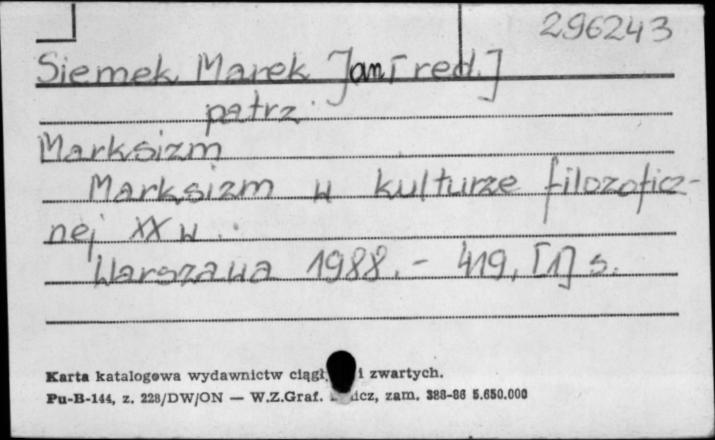 296243
Siemek Marek Jan [red.]
patrz
Marksizm
Marksizm w kulturze filozoficz-
nej XX w.
Warszawa 1988. - 419, [1] s.
Karta katalogowa wydawnictw i zwartych.
Pu-B-144, z. 228/DW/ON — W.Z.Graf. zam. 388-86 5.650.000